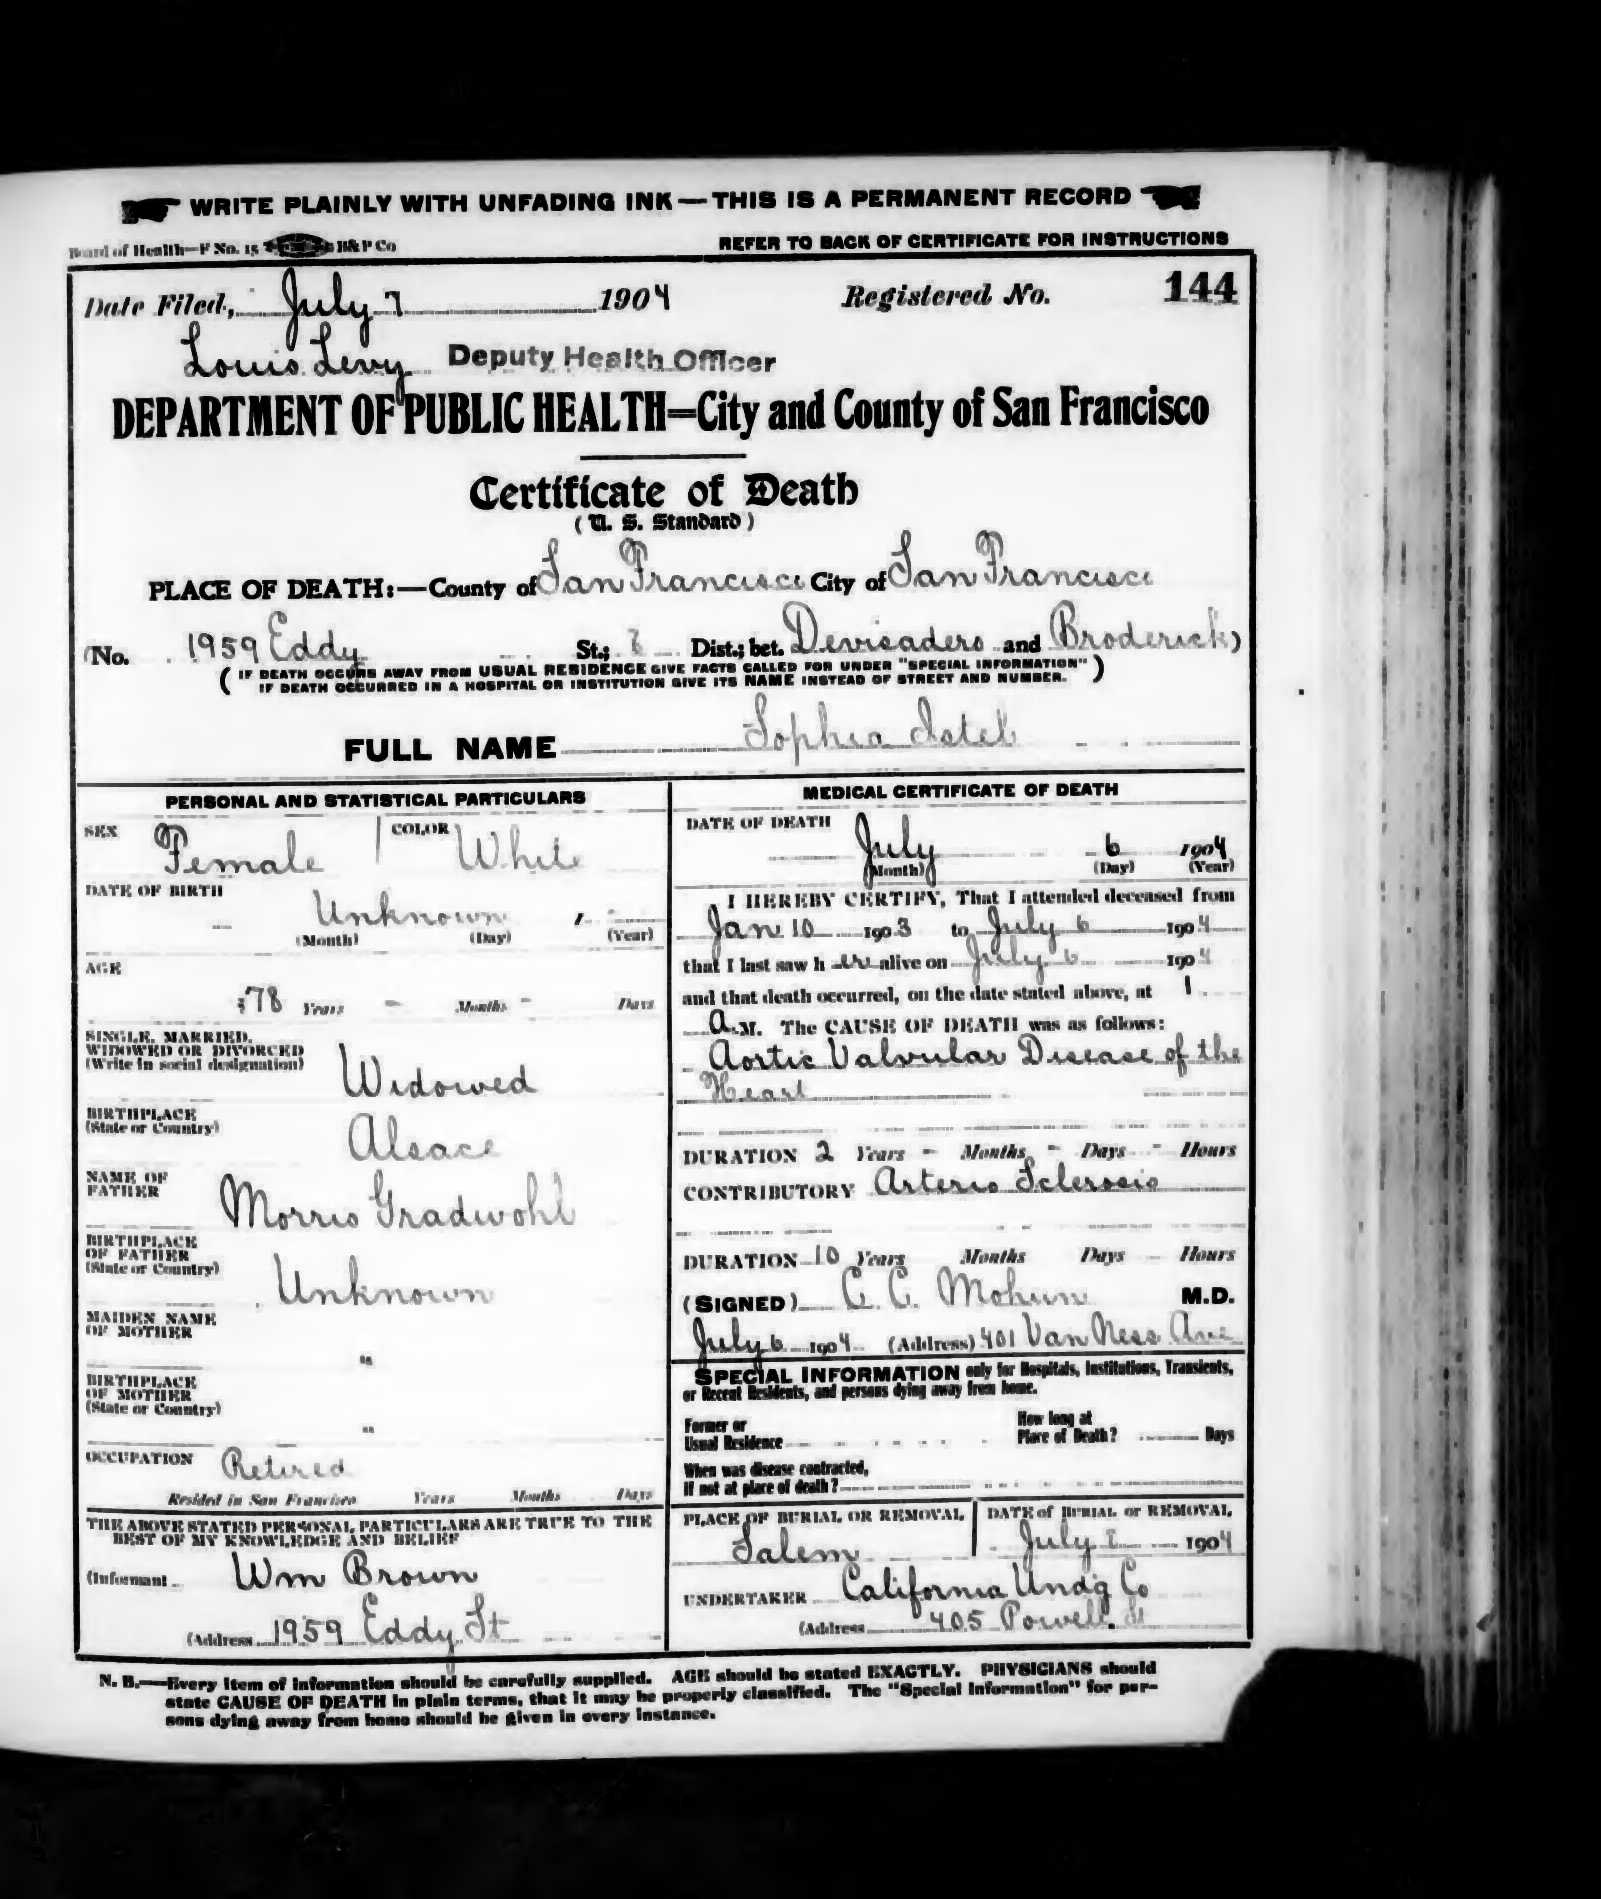 WRITE PLAINLY WITH UNFADING INK—THIS IS A PERMANENT RECORD
Board of Health—F No. 15 H&P Co REFER TO BACK OF CERTIFICATE FOR INSTRUCTIONS
Date Filed, July 7 1904 Registered No. 144
Louis Levy Deputy Health Officer
DEPARTMENT OF PUBLIC HEALTH—City and County of San Francisco
Certificate of Death
(U. S. Standard)
PLACE OF DEATH:—County of San Francisco City of San Francisco
(No. 1959 Eddy St.; Dist.; bet. Devisadero and Broderick)
(IF DEATH OCCURS AWAY FROM USUAL RESIDENCE GIVE FACTS CALLED FOR UNDER "SPECIAL INFORMATION"
IF DEATH OCCURRED IN A HOSPITAL OR INSTITUTION GIVE ITS NAME INSTEAD OF STREET AND NUMBER.)
FULL NAME Sophia Istel
PERSONAL AND STATISTICAL PARTICULARS
SEX Female COLOR White
DATE OF BIRTH
Unknown
(Month) (Day) (Year)
AGE
78 Years - Months - Days
SINGLE, MARRIED,
WIDOWED OR DIVORCED
(Write in social designation) Widowed
BIRTHPLACE
(State or Country) Alsace
NAME OF
FATHER Morris Gradwohl
BIRTHPLACE
OF FATHER
(State or Country) Unknown
MAIDEN NAME
OF MOTHER
"
BIRTHPLACE
OF MOTHER
(State or Country)
"
OCCUPATION Retired
Resided in San Francisco Years Months Days
THE ABOVE STATED PERSONAL PARTICULARS ARE TRUE TO THE
BEST OF MY KNOWLEDGE AND BELIEF
(Informant Wm Brown
(Address 1959 Eddy St
MEDICAL CERTIFICATE OF DEATH
DATE OF DEATH
July 6 1904
(Month) (Day) (Year)
I HEREBY CERTIFY, That I attended deceased from
Jan 10 1903 to July 6 1904
that I last saw her alive on July 6 1904
and that death occurred, on the date stated above, at 1
A.M. The CAUSE OF DEATH was as follows:
Aortic Valvular Disease of the
Heart
DURATION 2 Years - Months - Days - Hours
CONTRIBUTORY Arterio Sclerosis
DURATION 10 Years Months Days Hours
(SIGNED) C. C. Mohun M.D.
July 6 1904 (Address) 401 Van Ness Ave
SPECIAL INFORMATION only for Hospitals, Institutions, Transients,
or Recent Residents, and persons dying away from home.
Former or
Usual Residence
How long at
Place of Death? Days
When was disease contracted,
If not at place of death?
PLACE OF BURIAL OR REMOVAL
Salem
DATE of BURIAL or REMOVAL
July 1904
UNDERTAKER California Undg Co
(Address 405 Powell St
N. B.—Every item of information should be carefully supplied. AGE should be stated EXACTLY. PHYSICIANS should
state CAUSE OF DEATH in plain terms, that it may be properly classified. The "Special Information" for per-
sons dying away from home should be given in every instance.